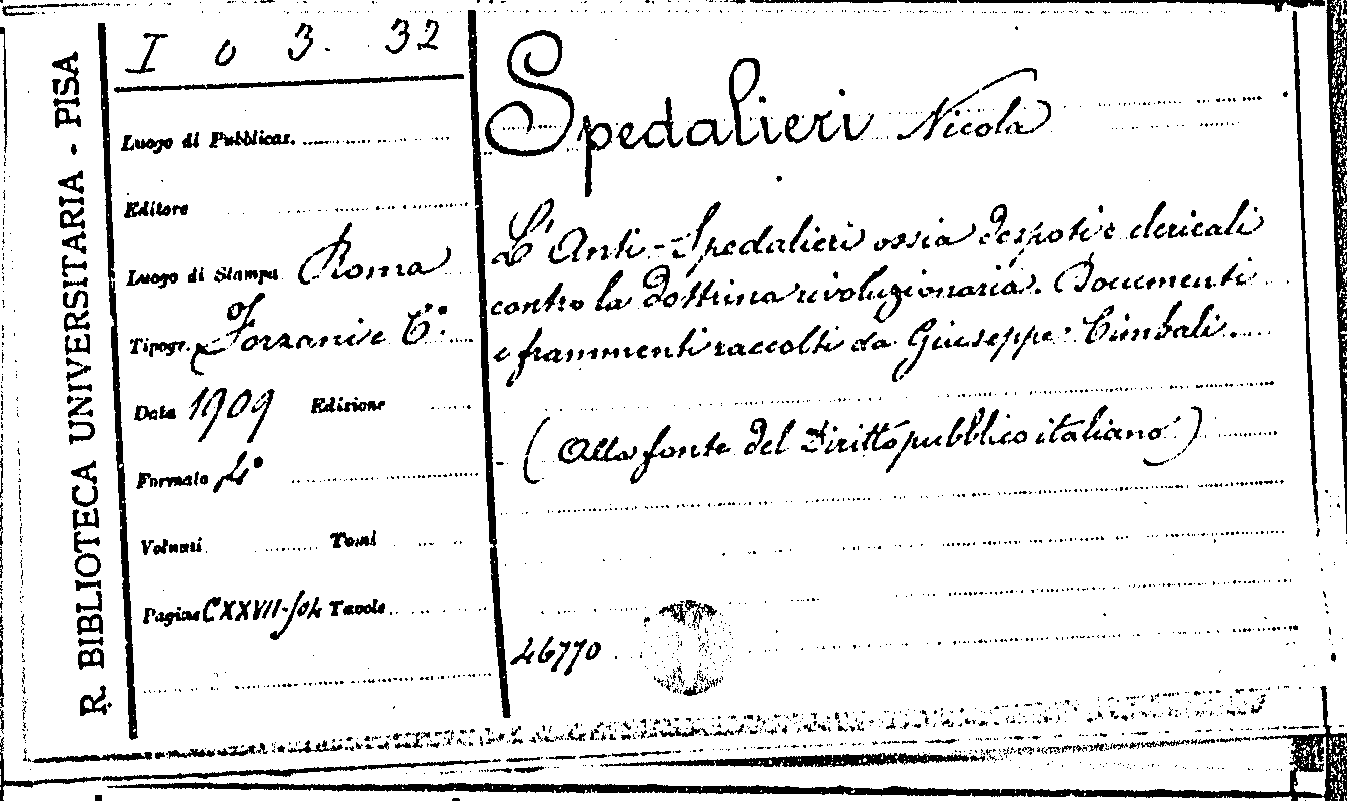 R. BIBLIOTECA UNIVERSITARIA - PISA
I o 3. 32
Luogo di Pubblicaz.
Editore
Luogo di Stampa Roma
Tipogr. Forzani e C.º
Data 1909 Edizione
Formato 4º
Volumi Tomi
Pagine CXXVII-504 Tavole
Spedalieri Nicola
L'Anti-Spedalieri ossia despoti e clericali
contro la dottrina rivoluzionaria. Documenti
e frammenti raccolti da Giuseppe Cimbali.
(Alla fonte del Diritto pubblico italiano)
46770